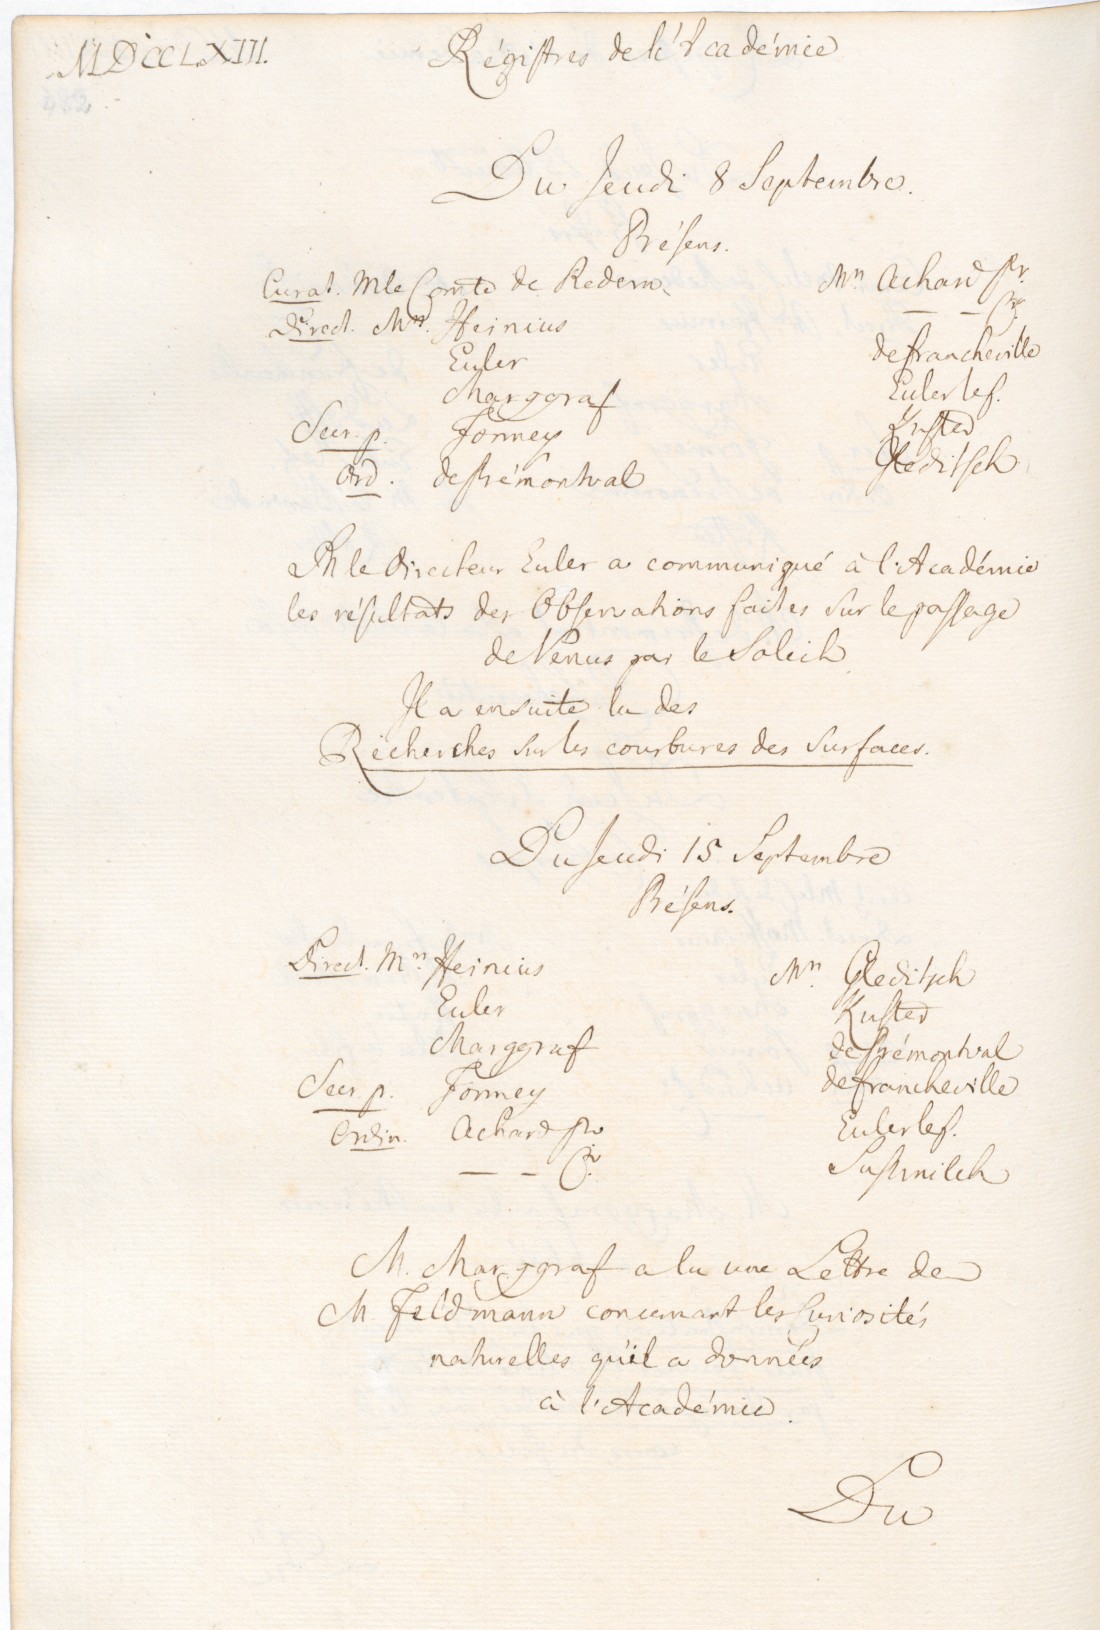 MDCCLXIII.
Régistres de l'Académie
Du Jeudi 8 Septembre.
Présens.
Curat. M le Comte de Redern
Direct. Mrs. Heinius
Euler
Marggraf
Secr. p. Formey
Ord. de Prémontval
Mrs Achard Pr.
— — 
de Francheville
Euler le f.
Kuster
Gleditsch
M le Directeur Euler a communiqué à l'Académie
les résultats des Observations faites sur le passage
de Venus par le Soleil.
Il a ensuite lu des
Recherches sur les courbures des surfaces.
Du Jeudi 15 Septembre
Présens.
Direct. Mrs Heinius
Euler
Marggraf
Secr. p. Formey
Ordin. Achard Pr
— —
Mrs. Gleditsch
Kuster
de Prémontval
de Francheville
Euler le f.
Susmilch
M. Marggraf a lu une Lettre de
M. Feldmann concernant les Curiosités
naturelles qu'il a données
à l'Académie.
Du